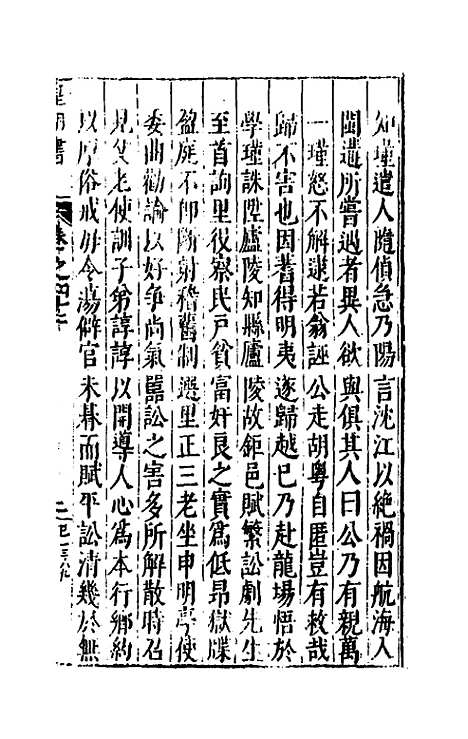 知瑾遣人隨偵急乃陽言沈江以絶禍因航海入
閩遺所嘗遇者異人欲與俱其人曰公乃有親萬
一瑾怒不解逮若翁誣公走胡粤自匿豈有救哉
歸不害也因蓍得明夷遂歸越已乃赴龍場悟於
學瑾誅陞廬陵知縣廬陵故鉅邑賦繁訟劇先生
至首詢里役察民戸貧富奸良之實爲低昻獄牒
盈庭不即斷射稽舊制選里正三老坐申明亭使
委曲勸諭以好争尚氣囂訟之害多所解散時召
見父老使訓子弟諄諄以開導人心爲本行鄉約
以厚俗戒毋令蕩僻官未朞而賦平訟清幾於無
皇明書
卷之四十二
二